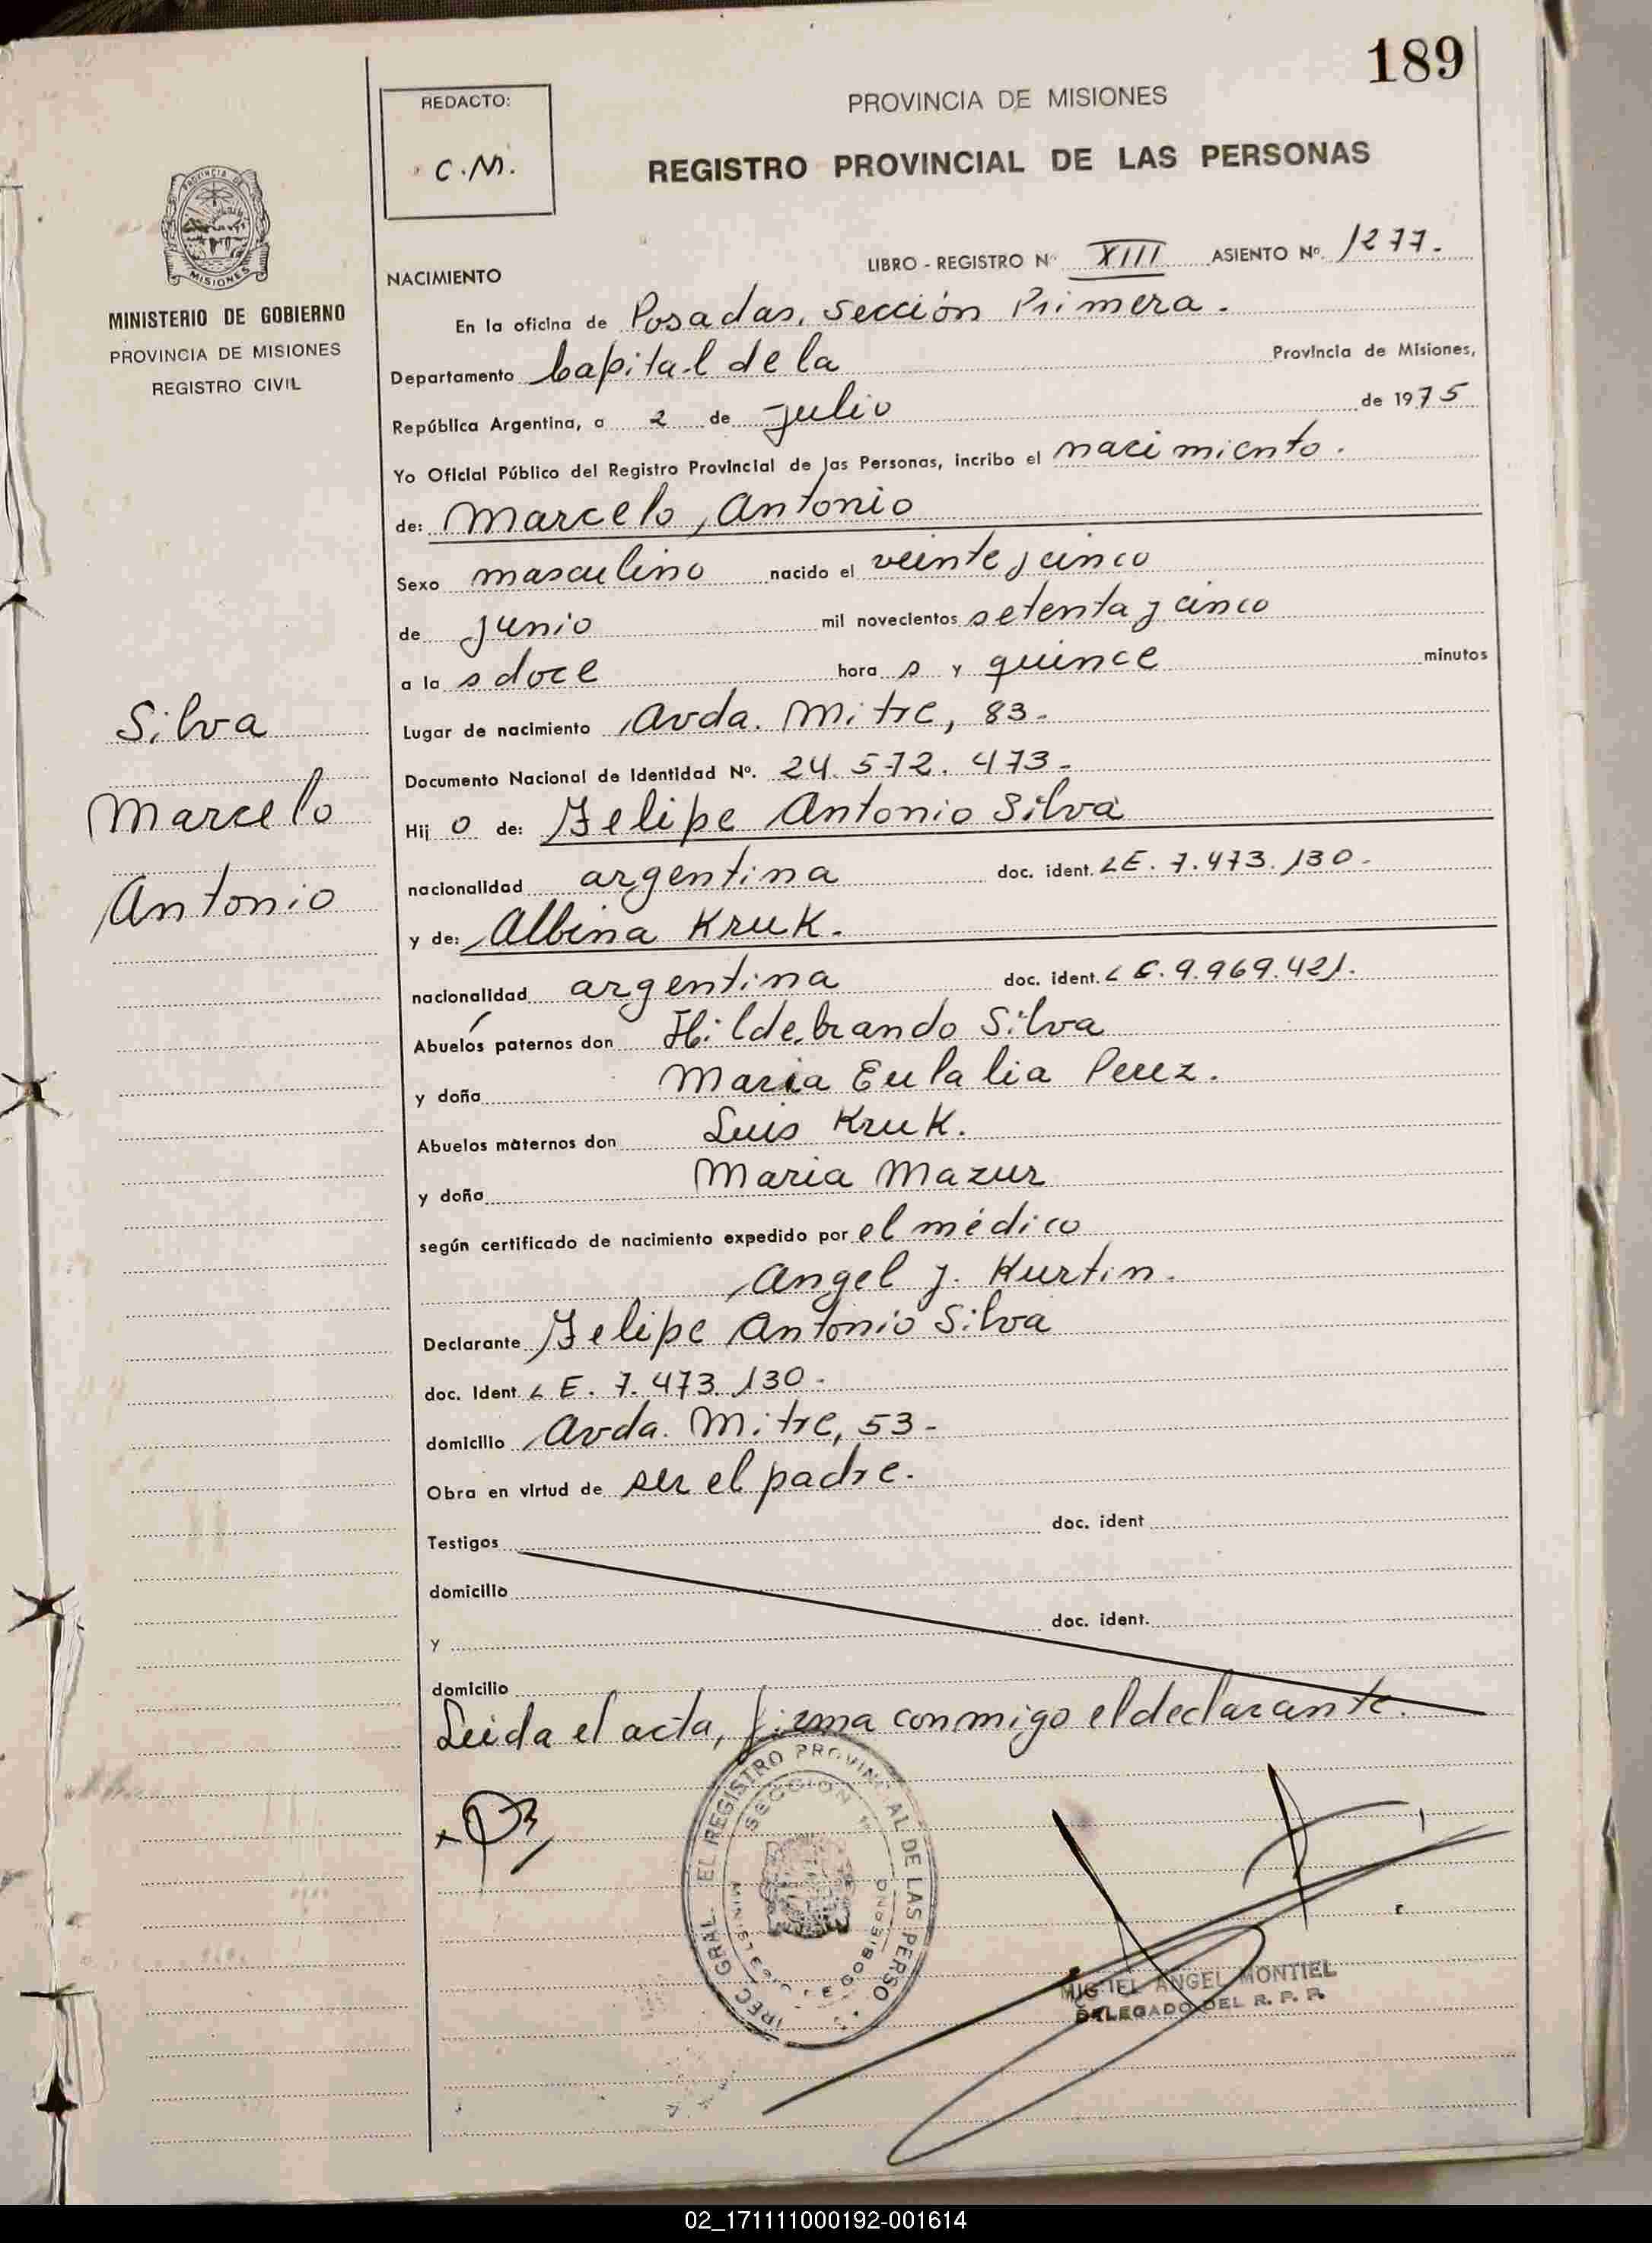 189
REDACTO:
C.M.
PROVINCIA DE MISIONES
REGISTRO PROVINCIAL DE LAS PERSONAS
PROVINCIA DE
MISIONES
MINISTERIO DE GOBIERNO
PROVINCIA DE MISIONES
REGISTRO CIVIL
LIBRO - REGISTRO Nº XIII ASIENTO Nº. 1277.
NACIMIENTO
En la oficina de Posadas, Sección Primera.
Departamento Capital de la Provincia de Misiones,
República Argentina, a 2 de Julio de 1975
Yo Oficial Público del Registro Provincial de las Personas, incribo el nacimiento.
de: Marcelo, Antonio
Sexo masculino nacido el veinte y cinco
de junio mil novecientos setenta y cinco
a la s doce hora s y quince minutos
Lugar de nacimiento Avda. Mitre, 83.
Documento Nacional de Identidad Nº. 24.572.473.
Hij o de: Felipe Antonio Silva
nacionalidad argentina doc. ident. LE. 7.473.130.
y de: Albina Kruk.
nacionalidad argentina doc. ident. LC. 9.969.421.
Abuelos paternos don Hildebrando Silva
y doña Maria Eulalia Perez.
Abuelos maternos don Luis Kruk.
y doña Maria Mazur
según certificado de nacimiento expedido por el médico
Angel J. Kurtin.
Declarante Felipe Antonio Silva
doc. Ident LE. 7.473.130.
domicilio Avda. Mitre, 53-
Obra en virtud de ser el padre.
Testigos doc. ident
domicilio
y doc. ident.
domicilio
Leida el acta, firma conmigo el declarante.
Silva
Marcelo
Antonio
EL REGISTRO PROVINCIAL DE LAS PERSO
SECCION 1ª
GOBIERNO
MIGUEL ANGEL MONTIEL
DELEGADO DEL R. P. P.
02_171111000192-001614